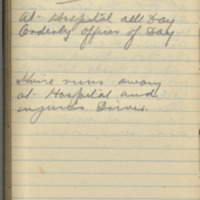 At Hospital all Day
Orderly officer of Day
Horse runs away
at Hospital and
injures Driver.